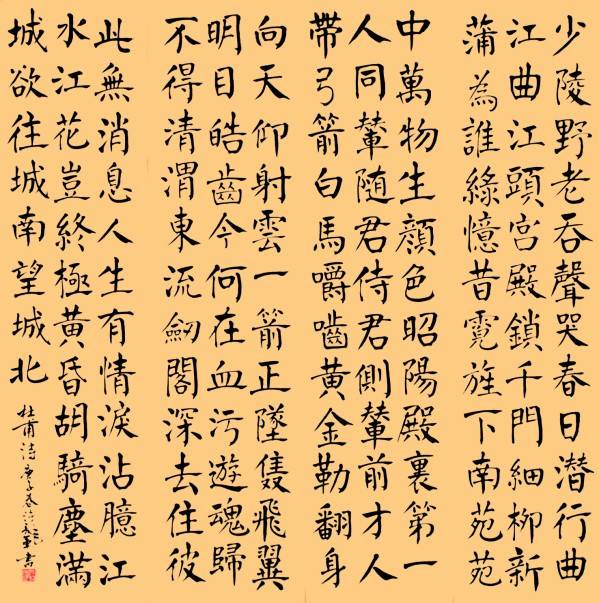 少陵野老吞聲哭春日潛行曲
江曲江頭宮殿鎖千門細柳新
蒲為誰綠憶昔霓旌下南苑苑
中萬物生顏色昭陽殿裏第一
人同輦随君侍君側輦前才人
帶弓箭白馬嚼嚙黃金勒翻身
向天仰射雲一箭正墜隻飛翼
明目皓齒今何在血污遊魂歸
不得清渭東流劒閣深去住彼
此無消息人生有情淚沾臆江
水江花豈終極黃昏胡騎塵滿
城欲往城南望城北
杜甫诗庚子春書